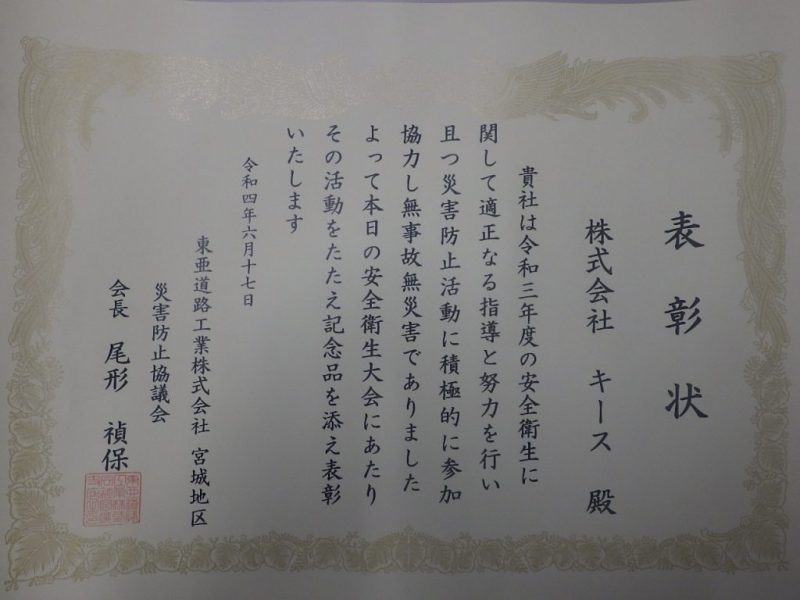 表彰状
株式会社 キース 殿
貴社は令和三年度の安全衛生に
関して適正なる指導と努力を行い
且つ災害防止活動に積極的に参加
協力し無事故無災害でありました
よって本日の安全衛生大会にあたり
その活動をたたえ記念品を添え表彰
いたします
令和四年六月十七日
東亜道路工業株式会社 宮城地区
災害防止協議会
会長 尾形 禎保